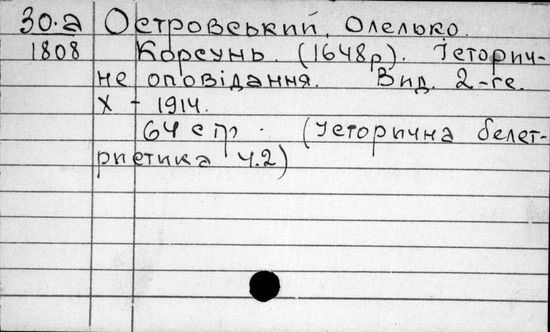 30.а Островський, Олелько.
1808 Корсунь. (1648р). Історич-
не оповідання. Вид. 2-ге.
Х - 1914.
64 стр. (Історична белет-
ристика ч.2)